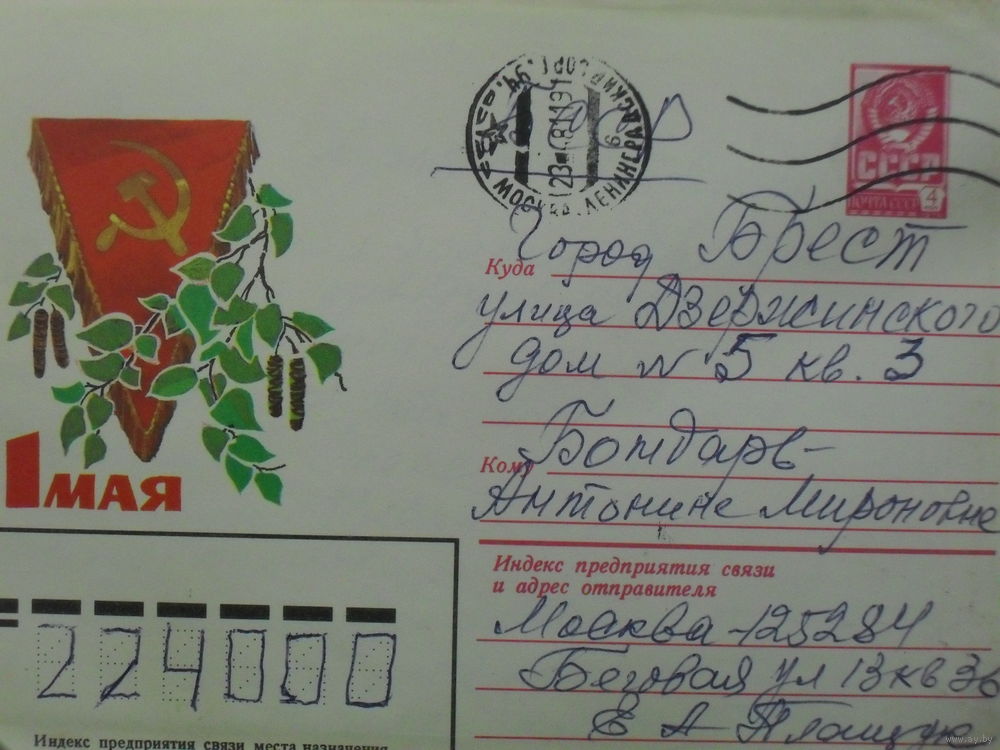 СССР
ПОЧТА СССР
4
МОСКВА. ЛЕНИНГРАДСКИЙ
БССР
Куда Город Брест
улица Дзержинского
дом № 5 кв. 3
Кому Бондарь-
Антонине Мироновне
1 МАЯ
Индекс предприятия связи
и адрес отправителя
Москва-125284
Беговая ул 13 кв
Е А
224000
Индекс предприятия связи места назначения
www.ay.by